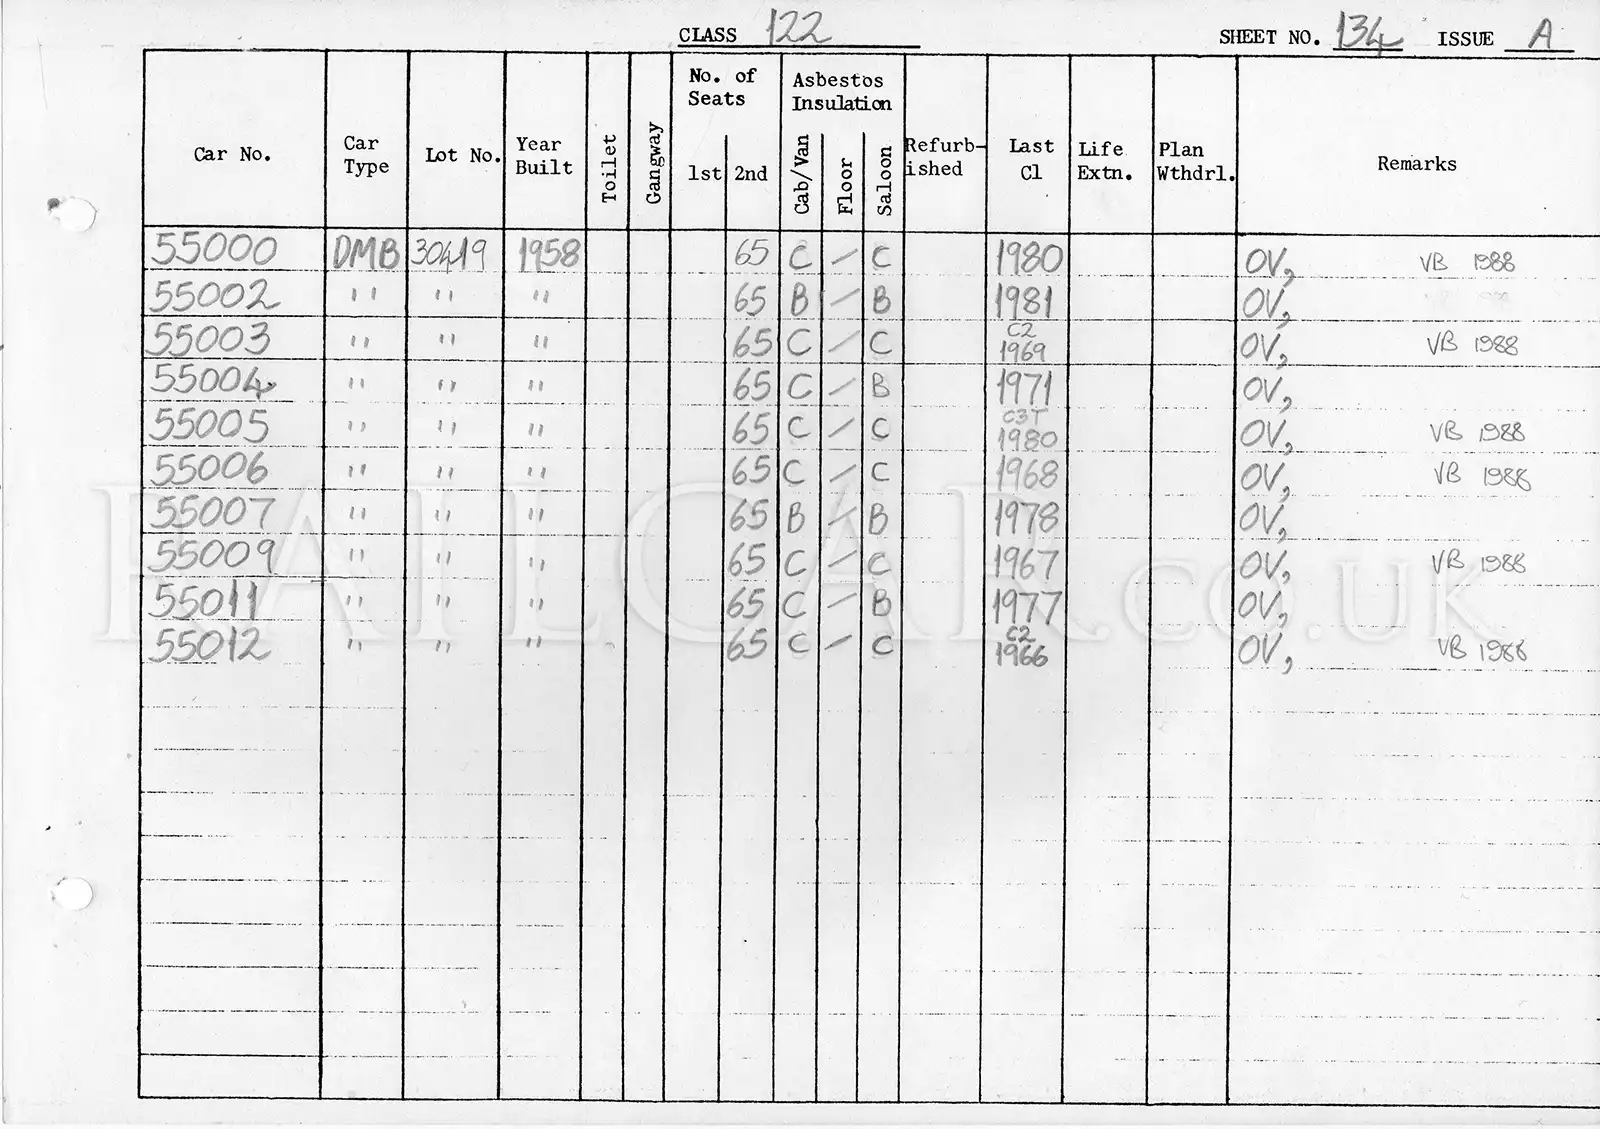 CLASS 122 SHEET NO. 134 ISSUE A
No. of Seats Asbestos Insulation
Car No. Car Type Lot No. Year Built Toilet Gangway 1st 2nd Cab/Van Floor Saloon Refurb-ished Last Cl Life Extn. Plan Wthdrl. Remarks
55000 DMB 30419 1958 65 C / C 1980 OV, VB 1988
55002 " " " 65 B / B 1981 OV,
55003 " " " 65 C / C C2 1969 OV, VB 1988
55004 " " " 65 C / B 1971 OV,
55005 " " " 65 C / C C3T 1980 OV, VB 1988
55006 " " " 65 C / C 1968 OV, VB 1988
55007 " " " 65 B / B 1978 OV,
55009 " " " 65 C / C 1967 OV, VB 1988
55011 " " " 65 C / B 1977 OV,
55012 " " " 65 C / C C2 1966 OV, VB 1988
RAILCAR.co.uk